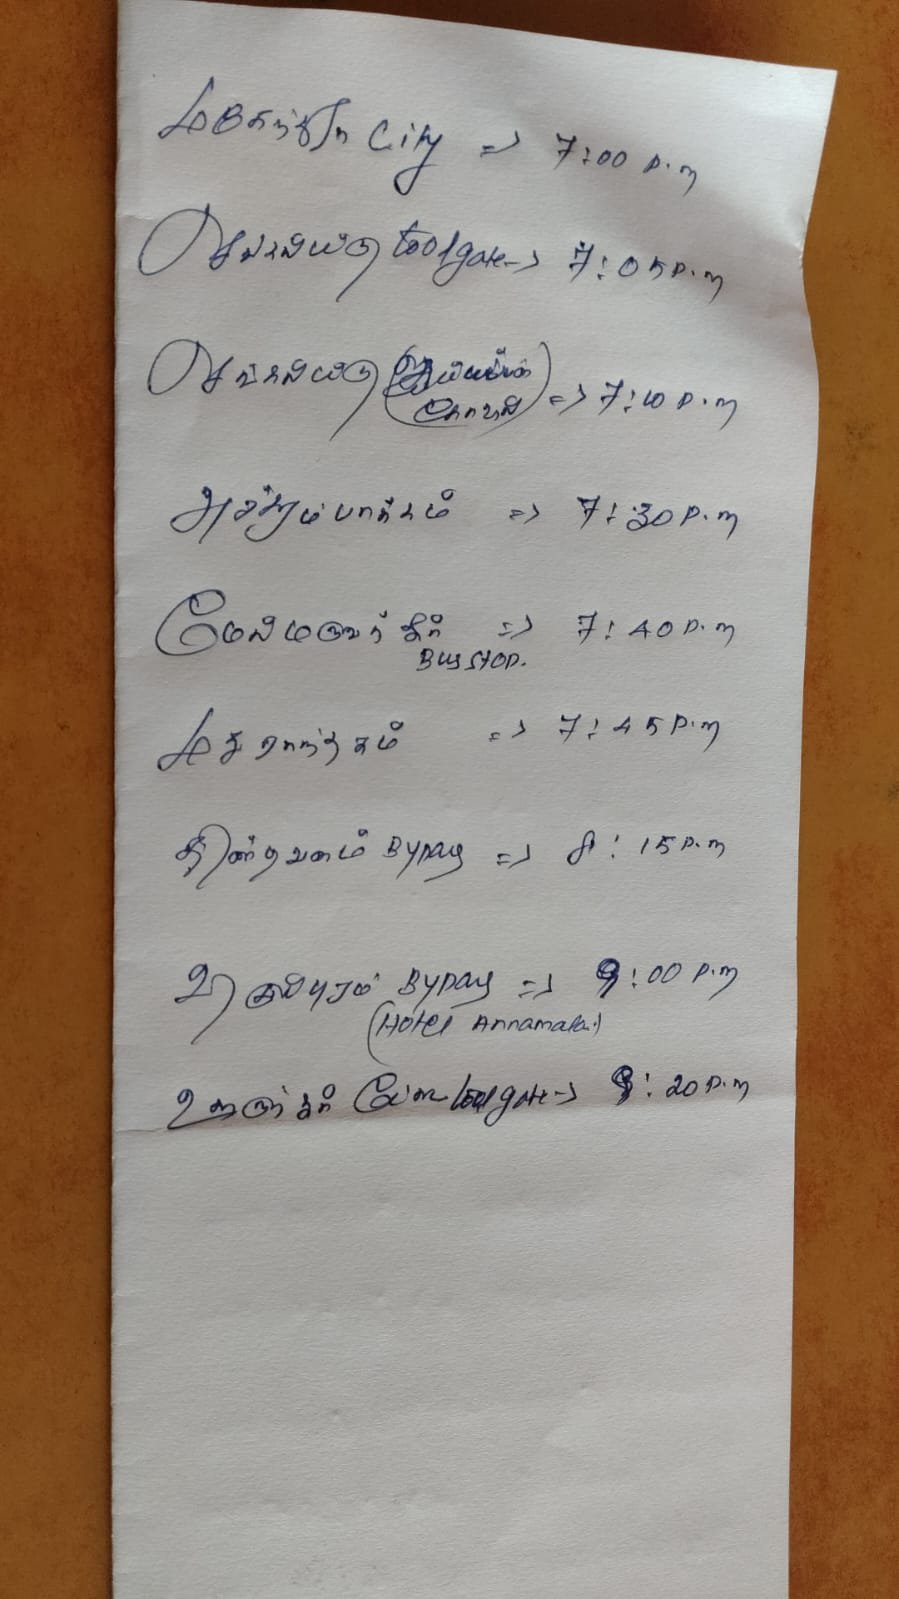 மகேந்திரா City => 7:00 P.m
செங்கல்பட்டு toolgate -> 7:05 P.m
=> 7:10 P.m
அச்சரம்பாக்கம் => 7:30 P.m
மேல்மருவத்தூர் => 7:40 P.m
Bus STOP.
மதுராந்தகம் => 7:45 P.m
திண்டிவனம் Bypass => 8:15 P.m
விழுப்புரம் Bypass => 9:00 P.m
(Hotel Annamalai)
உளுந்தூர் பேட்டை toolgate -> 9:20 P.m